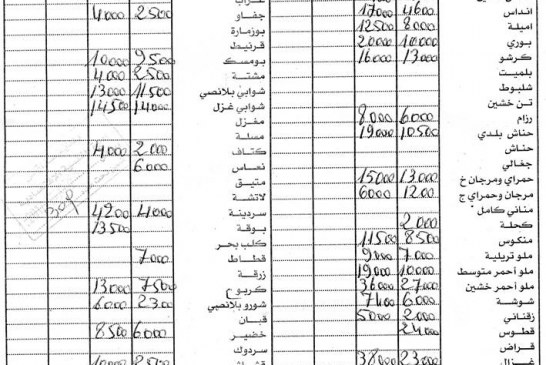 انداس 4600 17000
اميلة 8000 12500
بوري 10000 20000
كرشو 13000 16000
بلميت
شلبوط
تن خشين
رزام 6000 8000
حناش بلدي 10500 19000
حناش
جغالي
حمراي ومرجان خ 13000 15000
مرجان وحمراي ج 1200 6000
مناني كامل
كحلة 2000
منكوس 8500 11500
ملو تريلية 7000 9000
ملو أحمر متوسط 10000 19000
ملو أحمر خشين 27000 36000
شوشة 6000
زقناني 2000 5000
قطوس 24000
قراض
غزال 23000 38000
جغاو 2500 4000
بوزمارة
قرنيط
بومسك 9500 10000
مشتة 2500 4000
شوابي بلانصي 11500 13000
شوابي غزل 14000 14500
مغزل
مسلة
كتاف 2000 4000
نعاس 6000
متيق
لاتشة
سردينة 4000 4200
بوقة 13500
كلب بحر
قطاط 7000
زرقة
كربو 7500 13000
شورو بلانصي 2300 6000
قبان
خضير 6000 8500
سردوك